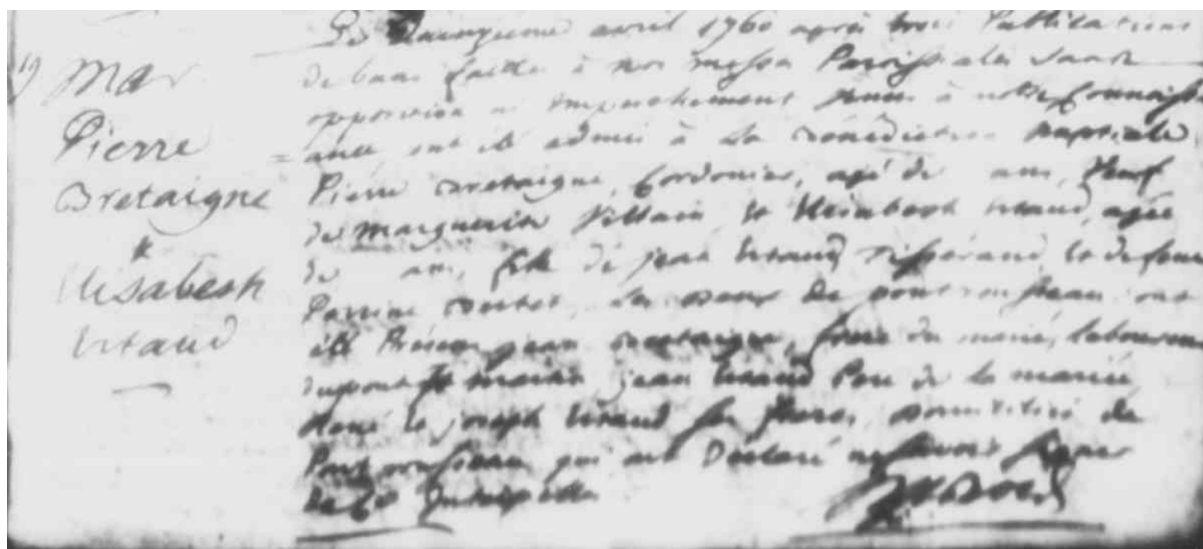 19
Mar
Pierre
Bretaigne
&
Elisabeth
Utaud
Le Quinzieme avril 1760 après trois Publications
de bans faittes à nos messes Paroissiales sans
opposition ni empeschement venu à notre Connoiss
= ance, ont été admis à La Bénédiction nuptiale,
Pierre Bretaigne, Cordonier, agé de ans, Veuf
de marguerite Villain et Elisabeth Utaud, agée
de ans, fille de jean Utaud Tisserand et de feue
Perrine, Les Deux de pont rousseau, ont
été Présens jean Bretaigne, frere du marié, laboureur
du pont St martin, jean Utaud Pere de la mariée
René et joseph Utaud ses freres, domiciliés de
Pont rousseau qui ont Déclaré ne savoir signer
De Ce Interpellés